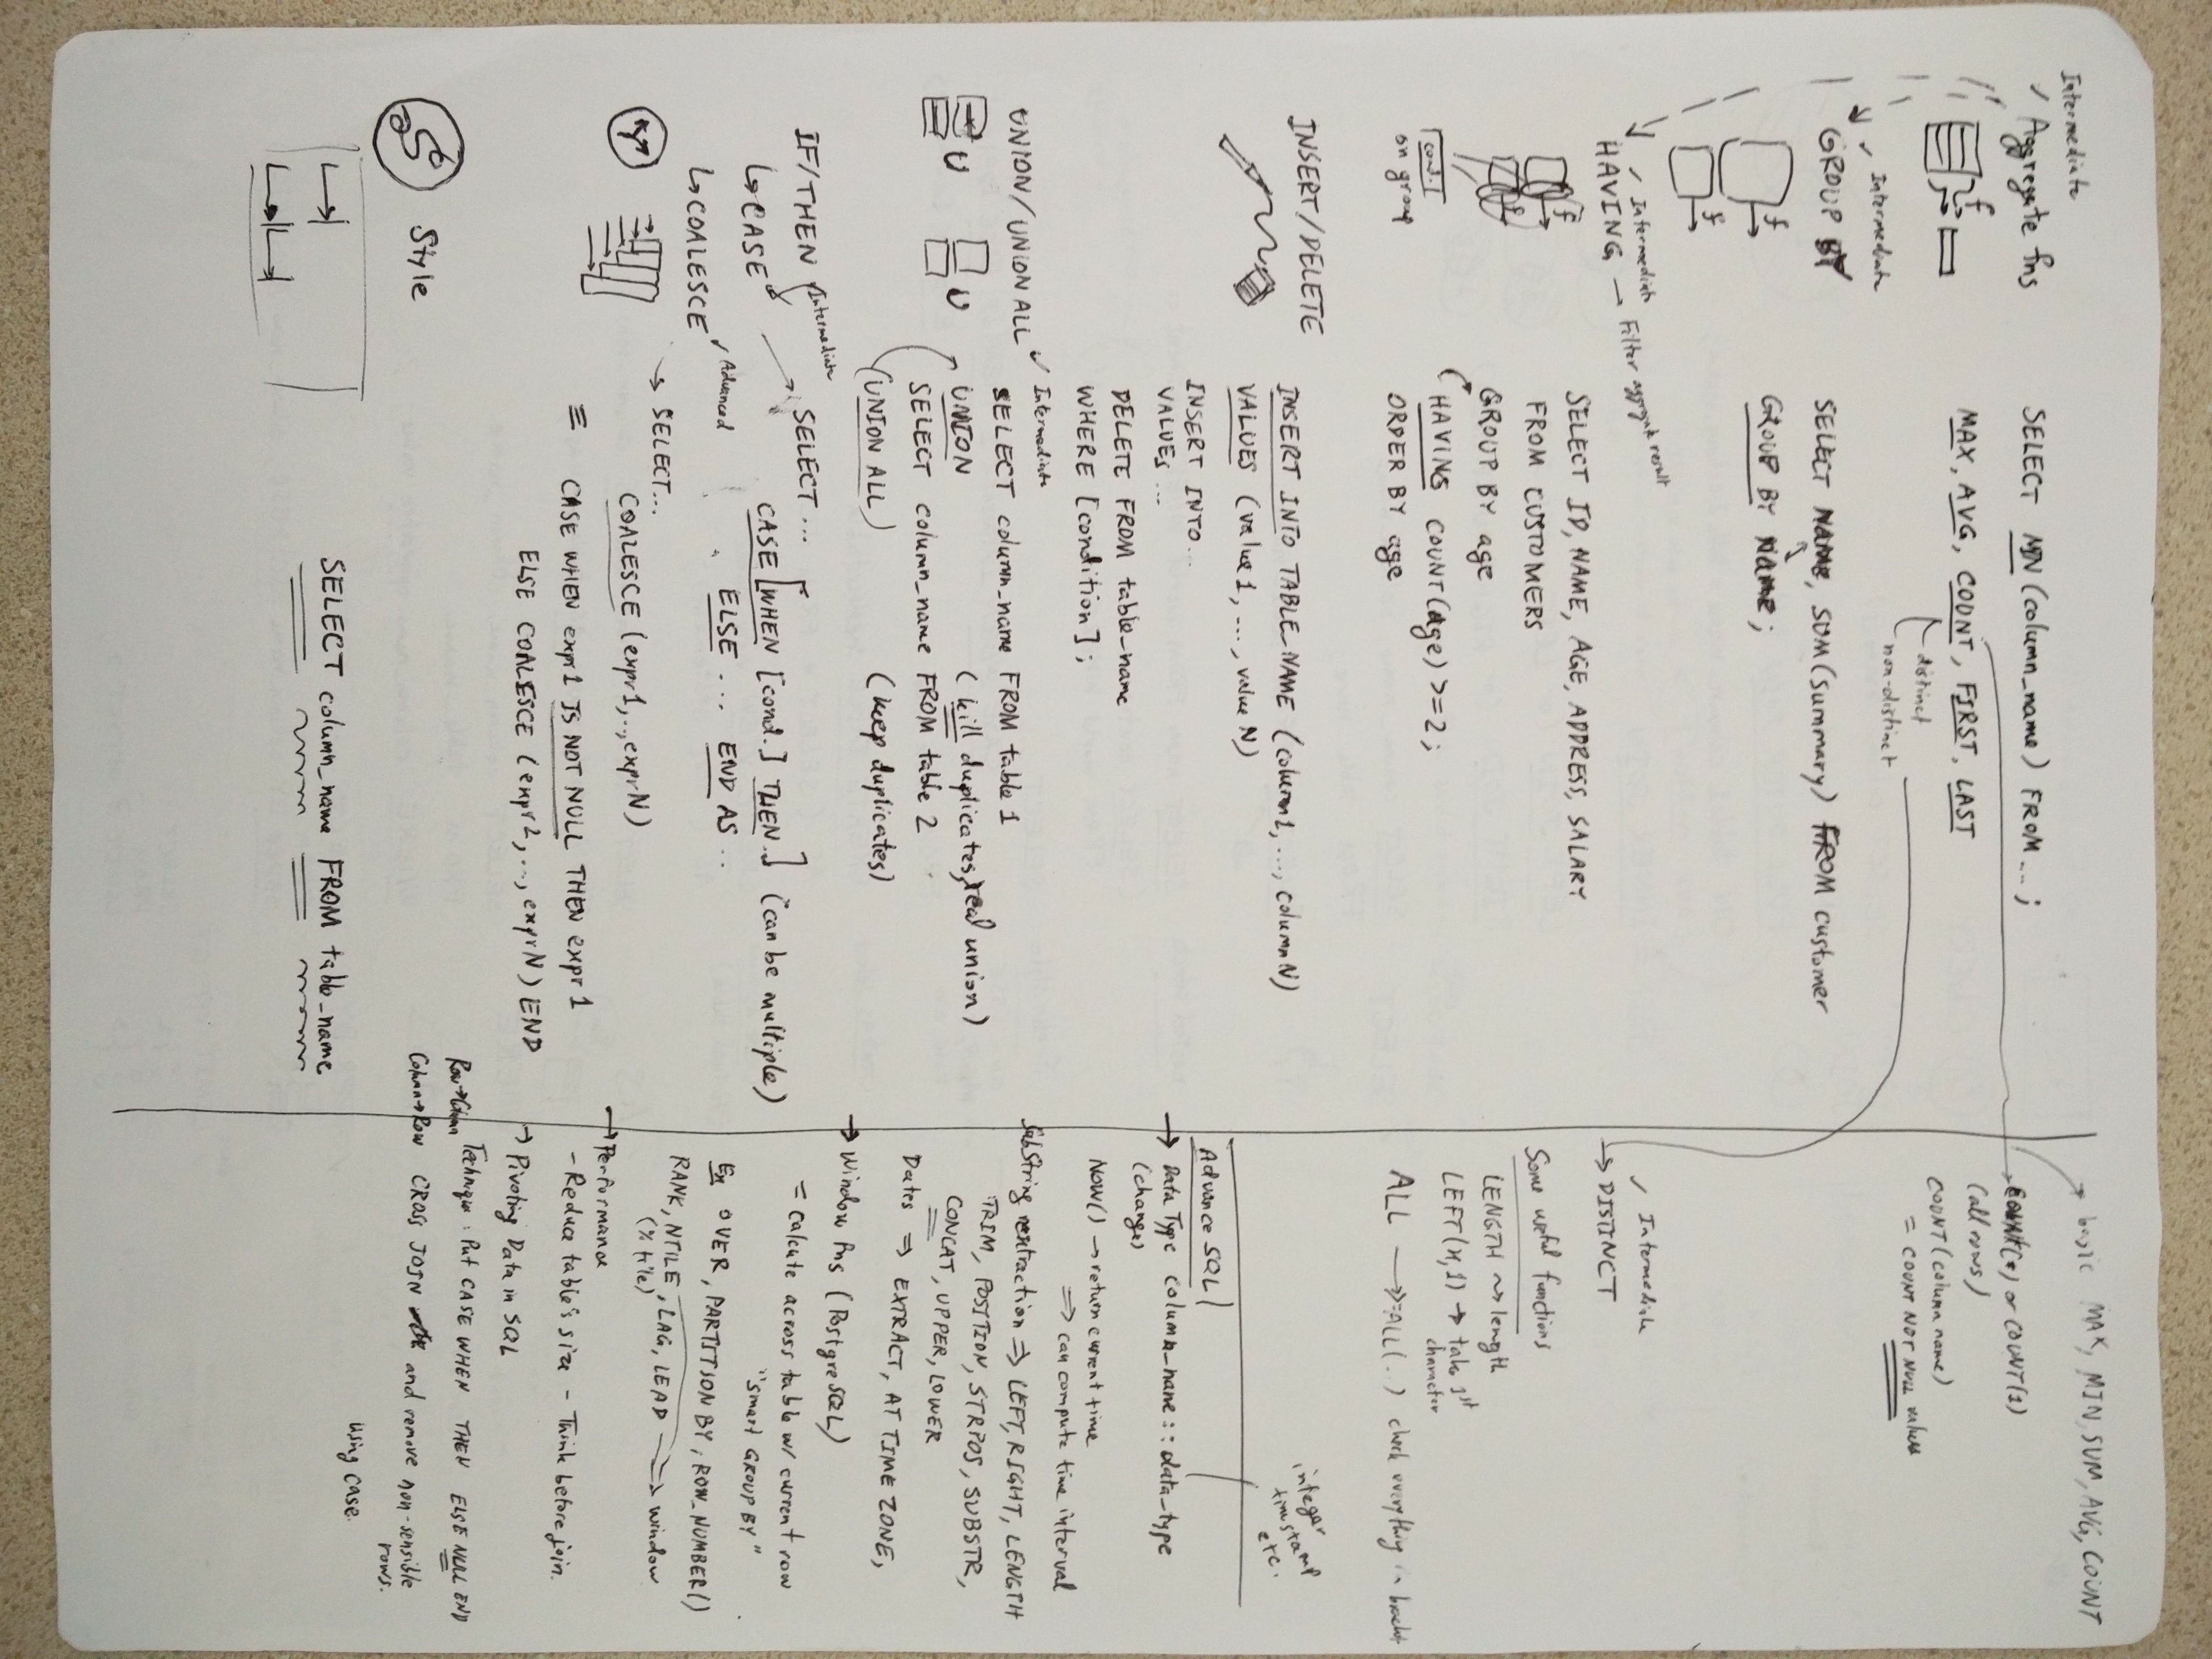 Intermediate
✓ Aggregate fns
f
SELECT MIN (column_name) FROM ... ;
MAX, AVG, COUNT, FIRST, LAST
distinct
non-distinct
✓ Intermediate
GROUP BY
f
f
SELECT NAME, SUM(summary) FROM customer
GROUP BY NAME;
✓ Intermediate
HAVING → Filter aggregate result
f
f
cond.
on group
SELECT ID, NAME, AGE, ADDRESS, SALARY
FROM CUSTOMERS
GROUP BY age
HAVING COUNT(age) >=2;
ORDER BY age
INSERT/DELETE
INSERT INTO TABLE_NAME (column1, ..., columnN)
VALUES (value1, ..., valueN)
INSERT INTO...
VALUES ...
DELETE FROM table_name
WHERE [condition];
UNION/UNION ALL
✓ Intermediate
U
U
SELECT column_name FROM table 1
UNION (kill duplicates, real union)
SELECT column_name FROM table 2
(UNION ALL) (keep duplicates)
IF/THEN
Intermediate
↳ CASE
✓ Advanced
↳ COALESCE
SELECT ...
CASE [WHEN [cond.] THEN..] (can be multiple)
ELSE ... END AS ..
→ SELECT...
COALESCE (expr1,..,exprN)
≡ CASE WHEN expr1 IS NOT NULL THEN expr1
ELSE COALESCE (expr2,..,exprN) END
S Style
SELECT column_name FROM table_name
→ basic MAX, MIN, SUM, AVG, COUNT
COUNT(*) or COUNT(1)
(all rows)
COUNT(column name)
= COUNT NOT NULL values
✓ Intermediate
→ DISTINCT
Some useful functions
LENGTH ⇝ length
LEFT(x,1) → take 1st
character
ALL → >=ALL(..) check everything in bracket
integer
timestamp
etc.
Advance SQL
→ Data Type column_name::data_type
(change)
NOW() → return current time
⇒ can compute time interval
SubString extraction ⇒ LEFT, RIGHT, LENGTH
TRIM, POSITION, STRPOS, SUBSTR,
CONCAT, UPPER, LOWER
Dates ⇒ EXTRACT, AT TIME ZONE,
→ Window fns (PostgreSQL)
= Calcute across table w/ current row
"smart GROUP BY"
Ex OVER, PARTITION BY, ROW_NUMBER()
RANK, NTILE, LAG, LEAD → window
(% tile)
→ Performance
- Reduce table's size - Think before join.
→ Pivoting Data in SQL
Row→Column Technique: Put CASE WHEN THEN ELSE NULL END
Column→Row CROSS JOIN and remove non-sensible
rows.
using case.